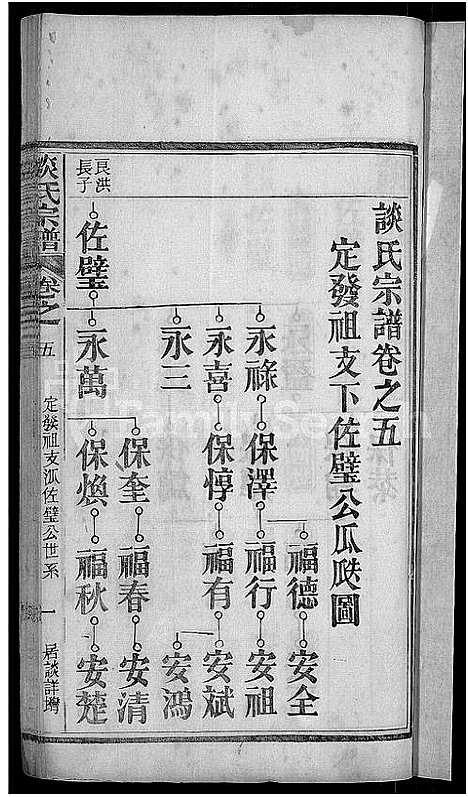 談氏宗譜卷之五
定發祖支下佐璧公瓜瓞圖
福德 安全
永祿 保澤 福行 安祖
永喜 保惇 福有 安斌
永三 安鴻
保奎 福春 安清
良洪長子 佐璧 永萬 保煥 福秋 安楚
談氏宗譜 卷之五 定發祖支派佐璧公世系 一
FamilySearch